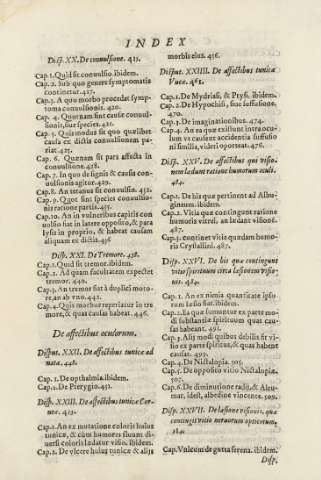 INDEX
Disp. XX. De conuulsione. 421.
Cap. 1. Quid sit conuulsio. ibidem.
Cap. 2. Sub quo genere symptomatis
continetur. 427.
Cap. 3. A quo morbo procedat symp-
toma conuulsionis. 420.
Cap. 4. Quotnam sint causæ conuul-
sionis, siue species. 421.
Cap. 5. Quis modus sit quo quælibet
causa ex dictis conuulsionem pa-
riat. 425.
Cap. 6. Quænam sit pars affecta in
conuulsione. 428.
Cap. 7. In quo de signis & causis con-
uulsionis agitur. 429.
Cap. 8. An tetanus sit conuulsio. 432.
Cap. 9. Quot sint species conuulsio-
nis ratione partis. 435.
Cap. 10. An in vulneribus capitis con
uulsio fiat in latere opposito, & para
lysis in proprio, & habeat causam
aliquam ex dictis. 436
Disp. XXI. De Tremore. 438.
Cap. 1. Quid sit tremor. ibidem.
Cap. 2. Ad quam facultatem expectet
tremor. 440.
Cap. 3. An tremor fiat à duplici moto-
re, an ab vno. 442.
Cap. 4. Quis morbus reperiatur in tre
more, & quas causas habeat. 446.
De affectibus oculorum.
Disput. XXII. De affectibus tunicæ ad
natæ. 448.
Cap. 1. De opthalmia. ibidem.
Cap. 2. De Pterygio. 452.
Disp. XXIII. De affectibus tunicæ Cor-
neæ. 453.
Cap. 1. An ex mutatione coloris huius
tunicæ, & cum humores sisunt di-
uersi coloris lædatur visio. ibidem.
Cap. 2. De vlcere huius tunicæ & alijs
morbis eius. 456.
Disput. XXIIII. De affectibus tunicæ
Vueæ. 461.
Cap. 1. De Mydriasi, & Ptysi. ibidem.
Cap. 2. De Hypochisi, siue suffusione.
470.
Cap. 3. De imaginationibus. 474.
Cap. 4. An ea quæ existunt intra ocu-
lum vt causent accidentia suffusio
ni similia, videri oporteat. 476.
Disp. XXV. De affectibus qui visio-
nem lædunt ratione humorum oculi.
484.
Cap. 1. De his quæ pertinent ad Albu-
gineum. ibidem.
Cap. 2. Vitia quæ contingunt ratione
humoris vitrei, an lædant visionē.
487.
Cap. 3. continet vitia quædam humo-
ris Crystallini. 487.
Disp. XXVI. De his quæ contingunt
vitio spirituum circa læsionem visio-
nis. 484.
Cap. 1. An ex nimia quantitate spiri-
tuum læsio fiat. ibidem.
Cap. 2. Ea quæ sumuntur ex parte mo-
di substantiæ spirituum quas cau-
sas habeant. 491.
Cap. 3. Alij modi quibus debilis fit vi-
sio ex parte spiritus, & quas habeant
causas. 497.
Cap. 4. De Nictalopia. 505.
Cap. 5. De opposito vitio Nictalopiæ.
507.
Cap. 6. De diminutione radij, &
mar, idest, albedine vincente. 509.
Disp. XXVII. De læsione visionis, quæ
contingit vitio neruorum opticorum.
514.
Cap. Vnicum de gutta serena. ibidem.
Disp.